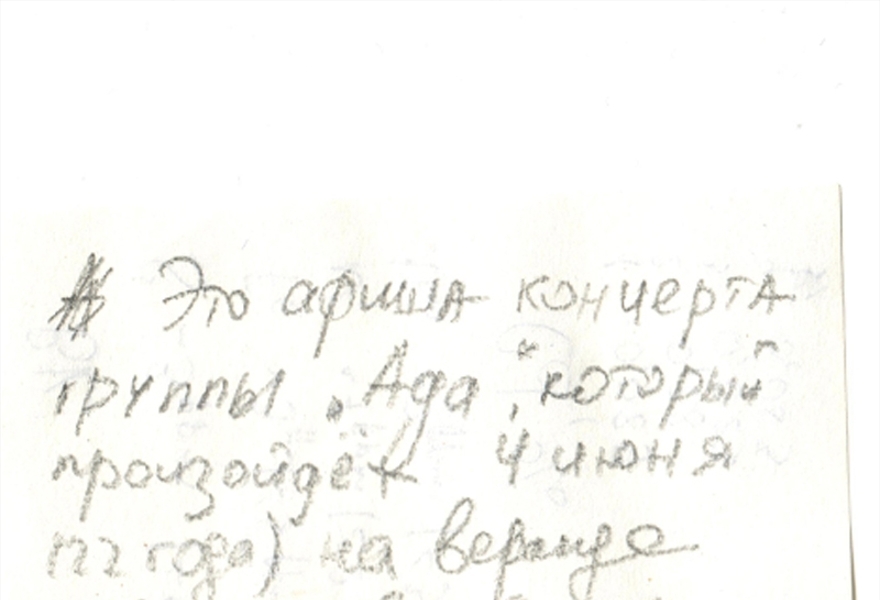 Это афиша концерта
группы „Ада“, который
произойдёт 4 июня
года) на веранде